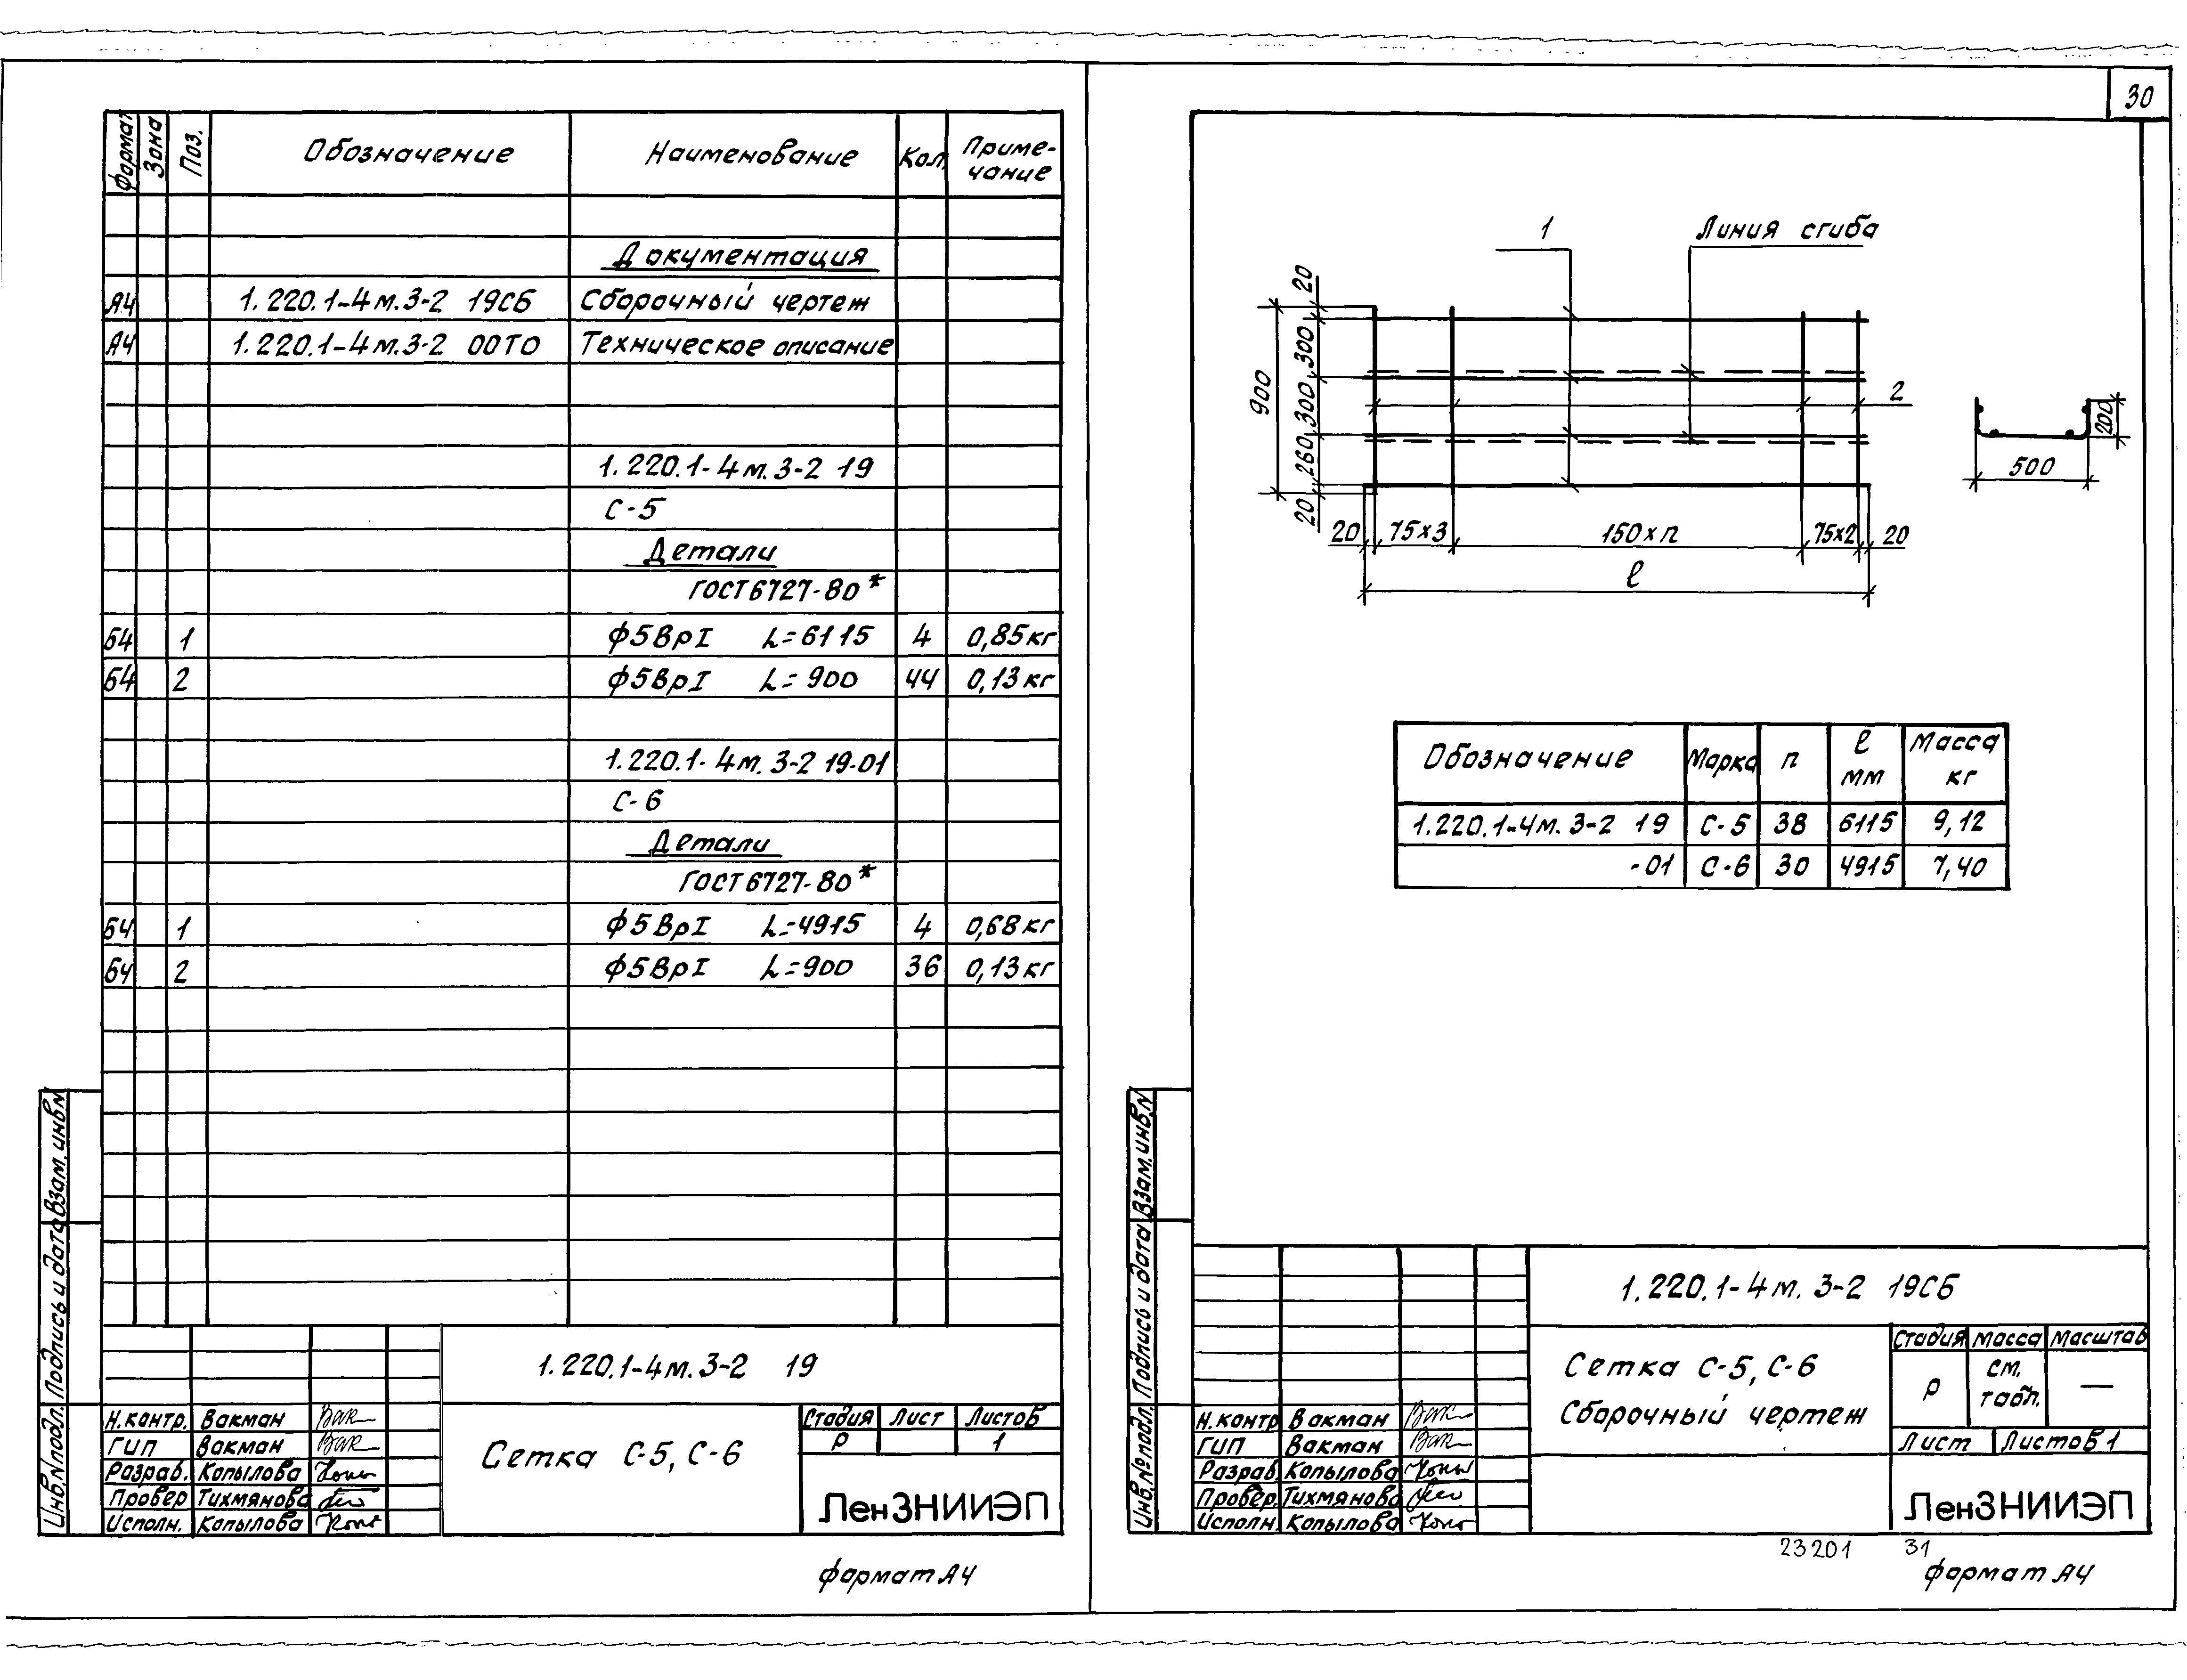 Формат Зона Поз. Обозначение Наименование Кол. Приме-
чание
Документация
А4 1.220.1-4м.3-2 19СБ Сборочный чертеж
А4 1.220.1-4м.3-2 00ТО Техническое описание
1.220.1-4м.3-2 19
С-5
Детали
ГОСТ 6727-80*
Б4 1 ф5ВрI L=6115 4 0,85кг
Б4 2 ф5ВрI L=900 44 0,13кг
1.220.1-4м.3-2 19-01
С-6
Детали
ГОСТ 6727-80*
Б4 1 ф5ВрI L=4915 4 0,68кг
Б4 2 ф5ВрI L=900 36 0,13кг
Взам.инв.N
Подпись и дата
Инв.N подл.
1.220.1-4м.3-2 19
Н.контр. Вакман
ГИП Вакман
Разраб. Копылова
Провер Тихмянова
Исполн. Копылова
Сетка С-5, С-6
Стадия Лист Листов
Р 1
ЛенЗНИИЭП
формат А4
30
1 Линия сгиба
20
300
300
260
20
900
2
20 75х3 150хп 75х2 20
ℓ
200
500
Обозначение Марка п ℓ мм Масса кг
1.220.1-4м.3-2 19 С-5 38 6115 9,12
-01 С-6 30 4915 7,40
Взам.инв.N
Подпись и дата
Инв.№ подл.
1.220.1-4м.3-2 19СБ
Н.контр Вакман
ГИП Вакман
Разраб. Копылова
Провер. Тихмянова
Исполн. Копылова
Сетка С-5, С-6
Сборочный чертеж
Стадия Масса Масштаб
Р см. табл. —
Лист Листов 1
ЛенЗНИИЭП
23201 31
формат А4